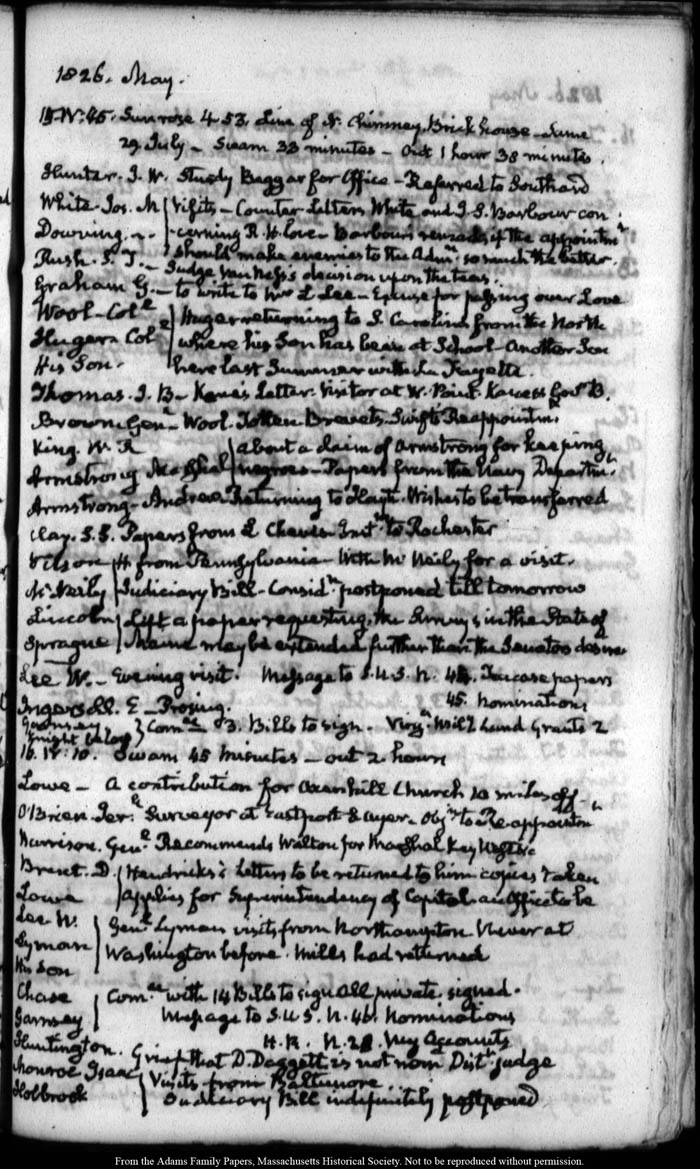 1826. May.
15. IV: 45. Sun rose 4-53. Line of N. Chimney, Brick house - June
29 July - Swam 38 minutes - Out 1 hour 38 minutes.
Hunter. J. W. Study Beggar for Office - Referred to Southard
White. Jos. M Visits - Counter Letters White and J. S. Barbour con
Downing. - cerning R. H. Love - Barbour's remark if the appointmt
Rush. S. J. - should make enemies to the Admn so much the better.
Judge Van Ness's decision upon the teas.
Graham G. - to write to Mrs L Lee - Excuse for passing over Love
Wool - Coll Huger returning to S. Carolina from the North
Huger Coll where his Son has been at School - Another Son
His Son. here last Summer with La Fayette.
Thomas. J. B - Kane's Letter. Visitor at W. Point
Brown Genl - Wool. Totten Brevets. Swift's Reappointmt
King. W. R about a claim of Armstrong for keeping
Armstrong Marshal negroes - Papers from the Navy Departmt
Armstrong - Andrew Returning to Hayti. Wishes to be transferred
Clay. S. S. Papers from L Cheves to Rochester
H from Pennsylvania - With Mc Neily for a visit.
Mc Neily Judiciary Bill - Considn postponed till tomorrow
Lincoln Left a paper requesting, the Surveys in the State of
Sprague Maine may be extended further than the Senators desire
Lee W. - Evening visit. Message to S. U. S. N. 44. papers
Ingersoll. E - Prosing. 45. Nominations
Comee 3. Bills to sign. Virga Mily Land Grants 2
16. IV: 10. Swam 45 minutes - out 2 hours
Lowe - A contribution for Oxenhill Church 10 miles off
O'Brien Jery Surveyor at Eastport & Ayer - Objn to Re appointmt
Harrison. Genl Recommends Walton for Marshal Key West
Brent. D. Hendricks's Letters to be returned to him copies taken
Lowe applies for Superintendency of Capitol - an Office to be
Lee W. Genl Lyman visits from Northampton Never at
Lyman Washington before. Mills had returned
His Son
Chase Comee with 14 Bills to sign all private. signed.
Garnsey Message to S. U. S. N. 46. Nominations
H. R. N. 28. Navy Accounts
Huntington. Grief that D. Daggett is not nomd Distt judge
Monroe Isaac Visits from Baltimore.
Holbrook Judiciary Bill indefinitely postponed
From the Adams Family Papers, Massachusetts Historical Society. Not to be reproduced without permission.